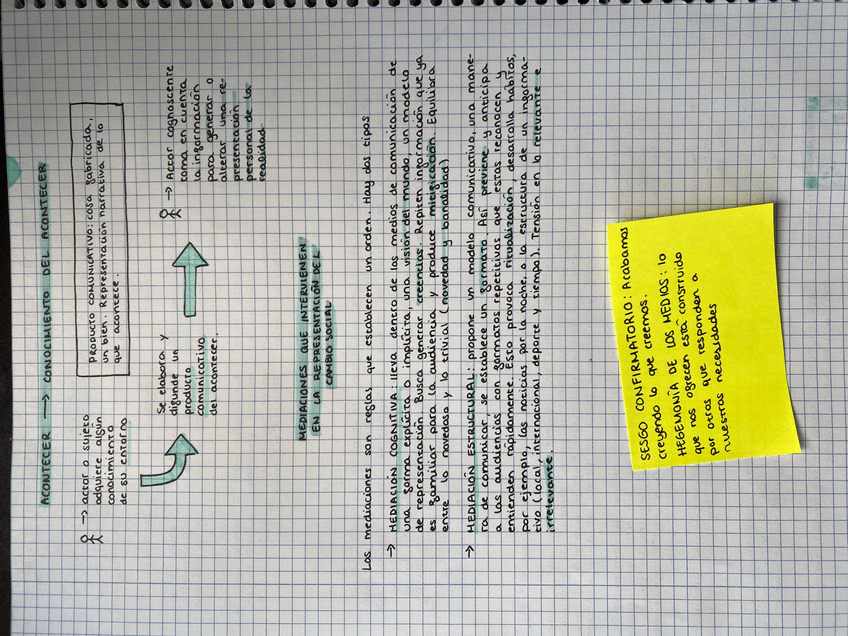 ACONTECER → CONOCIMIENTO DEL ACONTECER
→ actor o sujeto
adquiere algún
conocimiento
de su entorno
PRODUCTO COMUNICATIVO: cosa fabricada,
un bien. Representación narrativa de lo
que acontece.
Se elabora y
difunde un
producto
comunicativo
del acontecer.
→ Actor cognoscente
toma en cuenta
la información
para generar o
alterar una re-
presentación
personal de la
realidad
MEDIACIONES QUE INTERVIENEN
EN LA REPRESENTACIÓN DEL
CAMBIO SOCIAL
Las mediaciones son reglas que establecen un orden. Hay dos tipos
→ MEDIACIÓN COGNITIVA: lleva dentro de los medios de comunicación de
una forma explícita o implícita, una visión del mundo, un modelo
de representación. Busca generar creencias. Repiten información que ya
es familiar para la audiencia y produce mitificación. Equilibra
entre lo novedoso y lo trivial (novedad y banalidad)
→ MEDIACIÓN ESTRUCTURAL: propone un modelo comunicativo, una mane-
ra de comunicar, se establece un formato. Así previene y anticipa
a las audiencias con formatos repetitivos que estas reconocen y
entienden rápidamente. Esto provoca ritualización, desarrolla hábitos,
por ejemplo, las noticias por la noche, o la estructura de un informa-
tivo (local, internacional, deporte y tiempo). Tensión en lo relevante e
irrelevante.
SESGO CONFIRMATORIO: Acabamos
creyendo lo que creemos.
HEGEMONÍA DE LOS MEDIOS: lo
que nos ofrecen está construido
por otros que responden a
nuestras necesidades